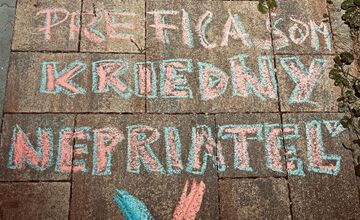 PRE FICA SOM
KRIEDNY
NEPRIATEĽ